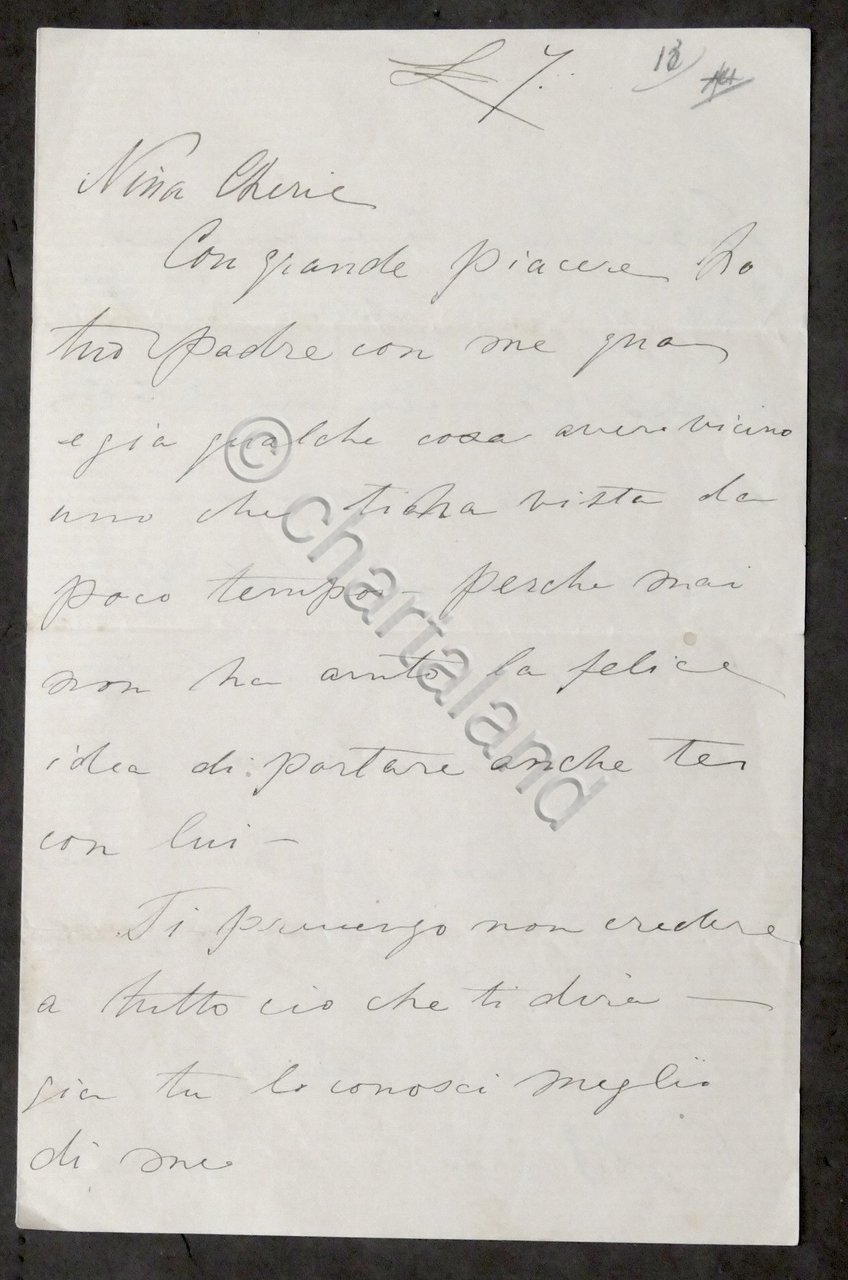 L 7.
13)
Nina Cherie
Con grande piacere ho
tuo padre con me qua
e gia qualche cosa avere vicino
uno che ti ha vista da
poco tempo – perche mai
non ha avuto la felice
idea di portare anche te
con lui –
Ti prevengo non credere
a tutto cio che ti dira —
gia tu lo conosci meglio
di me
© chartaland